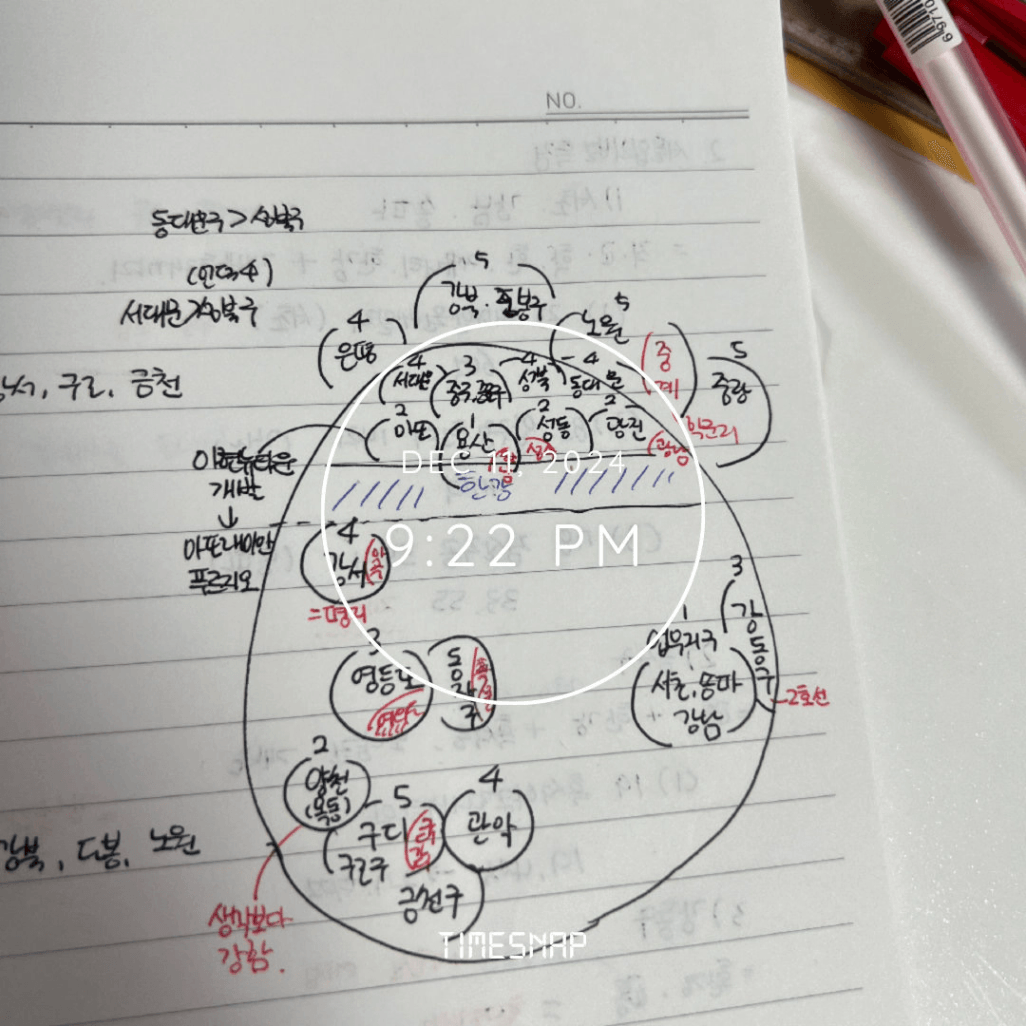 NO.
동대문구 > 성북구
(언덕4)
서대문>성북구
5
강북.도봉구
5
노원
4
은평
중계
5
중랑
4
서대문
3
4
성북
4
동대문
2
마포
1
용산
2
성동
성수
2
광진
광남
학군지
강서, 구로, 금천
개발
↓
마포래미안
푸르지오
한강
DEC 11, 2024
9:22 PM
4
강서
=평지
3
영등포
동작구
흑석
3
강동구
1
업무지구
서초.송파
강남
2호선
2
양천
(목동)
5
구디
구로구
4
관악
금천구
강북, 도봉, 노원
생각보다
강함.
TIMESNAP